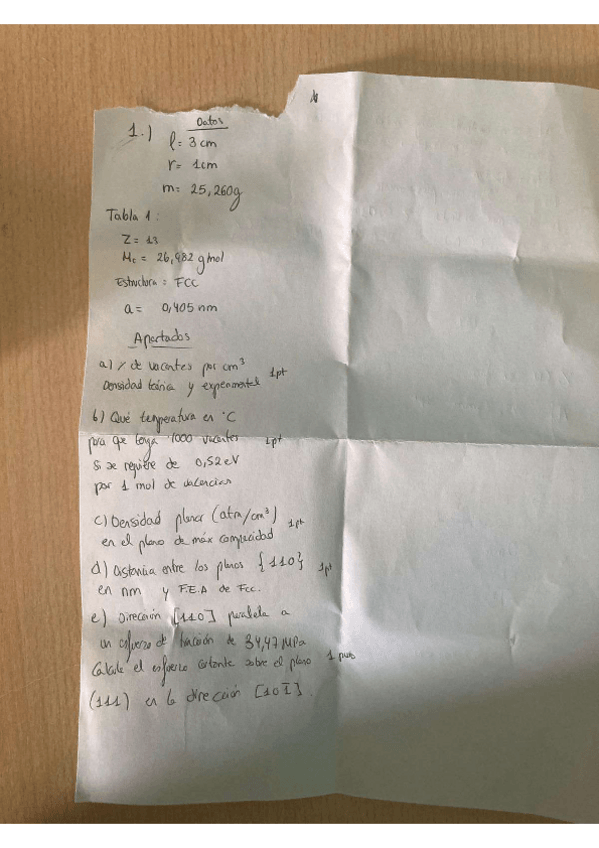 1.) Datos
l = 3 cm
r = 1cm
m = 25,260g
Tabla 1:
Z = 13
Mc = 26,982 g mol
Estructura = FCC
a = 0,405 nm
Apartados
a) % de vacantes por cm³
Densidad teórica y experimental 1pt
b) Qué temperatura en °C
para que tenga 1000 vacantes 1pt
Si se requiere de 0,52 eV
por 1 mol de vacancias
c) Densidad planar (atm/cm³) 1pt
en el plano de máx compacidad
d) Distancia entre los planos {110} 1pt
en nm y F.E.A de Fcc.
e) Dirección [110] paralela a
un esfuerzo de tracción de 34,47 MPa
Calcule el esfuerzo cortante sobre el plano 1 punto
(111) en la dirección [10Ī].